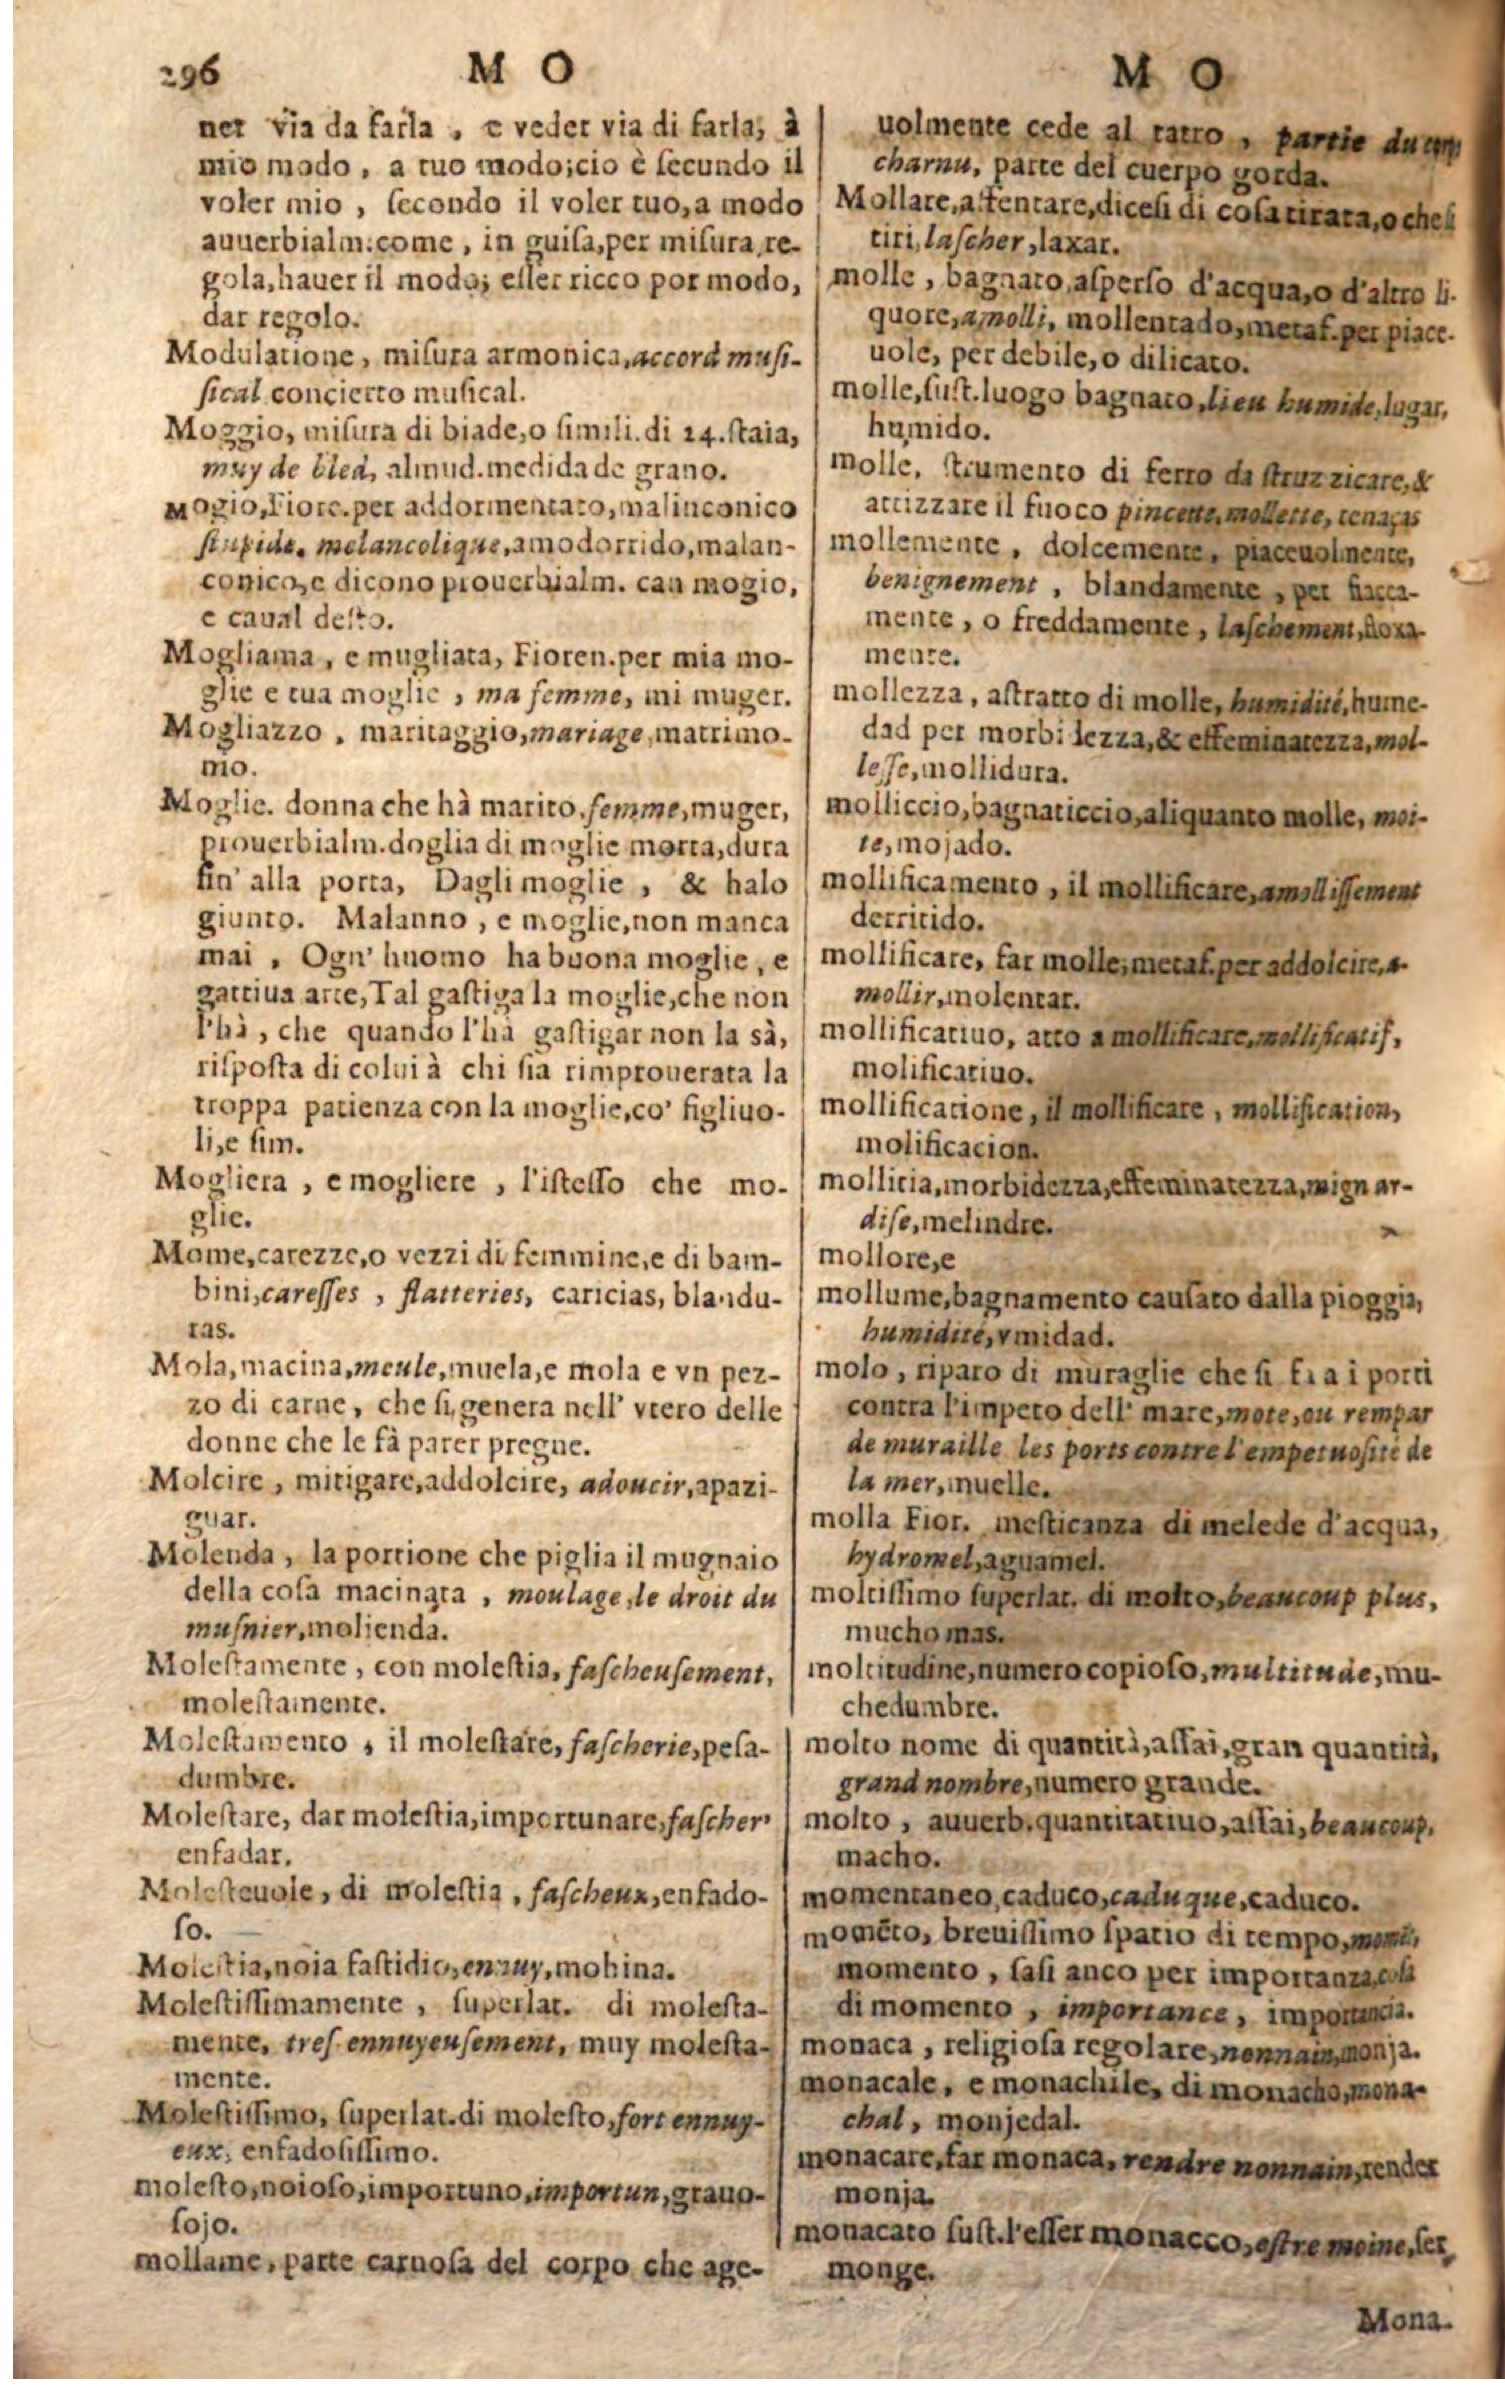 296
M O
M O
ner via da farla, e veder via di farla, à
mio modo, a tuo modo;cio è ſecundo il
voler mio, ſecondo il voler tuo,a modo
auuerbialm.come, in guiſa,per miſura,re-
gola,hauer il modo; eſſer ricco por modo,
dar regolo.
Modulatione, miſura armonica,accord muſi-
ſical concierto muſical.
Moggio, miſura di biade,o ſimili.di 24.ſtaia,
muy de bled, almud.medida de grano.
Mogio,Fiore.per addormentato,malinconico
ſtupide. melancolique,amodorrido,malan-
conico,e dicono prouerbialm. can mogio,
e caual deſto.
Mogliama, e mugliata, Fioren.per mia mo-
glie e tua moglie, ma femme, mi muger.
Mogliazzo, maritaggio,mariage,matrimo-
mo.
Moglie. donna che hà marito,femme,muger,
prouerbialm.doglia di moglie morta,dura
fin' alla porta, Dagli moglie, & halo
giunto. Malanno, e moglie,non manca
mai, Ogn' huomo ha buona moglie, e
gattiua arte,Tal gaſtiga la moglie,che non
l'hà, che quando l'hà gaſtigar non la sà,
riſpoſta di colui à chi ſia rimprouerata la
troppa patienza con la moglie,co' figliuo-
li,e ſim.
Mogliera, e mogliere, l'iſteſſo che mo-
glie.
Mome,carezze,o vezzi di femmine,e di bam-
bini,careſſes, flatteries, caricias, blandu-
ras.
Mola,macina,meule,muela,e mola e vn pez-
zo di carne, che ſi,genera nell' vtero delle
donne che le fà parer pregne.
Molcire, mitigare,addolcire, adoucir,apazi-
guar.
Molenda, la portione che piglia il mugnaio
della coſa macinata, moulage,le droit du
muſnier,molienda.
Moleſtamente, con moleſtia, faſcheuſement,
moleſtamente.
Moleſtamento, il moleſtare, faſcherie,peſa-
dumbre.
Moleſtare, dar moleſtia,importunare,faſcher,
enfadar.
Moleſteuole, di moleſtia, faſcheux,enfado-
ſo.
Moleſtia,noia faſtidio,ennuy,mohina.
Moleſtiſſimamente, ſuperlat. di moleſta-
mente, treſ-ennuyeuſement, muy moleſta-
mente.
Moleſtiſſimo, ſuperlat.di moleſto,fort ennuy-
eux, enfadoſiſſimo.
moleſto,noioſo,importuno,importun,grauo-
ſojo.
mollame, parte carnoſa del corpo che age-
uolmente cede al tatto, partie du corps
charnu, parte del cuerpo gorda.
Mollare,allentare,diceſi di coſa tirata,o che ſi
tiri,laſcher,laxar.
molle, bagnato,aſperſo d'acqua,o d'altro li-
quore,amolli, mollentado,metaf.per piace-
uole, per debile,o dilicato.
molle,ſuſt.luogo bagnato,lieu humide,lugar,
humido.
molle, ſtrumento di ferro da ſtruzzicare,&
attizzare il fuoco pincette,mollette, tenaças
mollemente, dolcemente, piaceuolmente,
benignement, blandamente, per fiacca-
mente, o freddamente, laſchement,floxa-
mente.
mollezza, aſtratto di molle, humidité,hume-
dad per morbidezza,& effeminatezza,mol-
leſſe,mollidura.
molliccio,bagnaticcio,aliquanto molle, moi-
te,mojado.
mollificamento, il mollificare,amolliſſement
derritido.
mollificare, far molle,metaf.per addolcire,a-
mollir,molentar.
mollificatiuo, atto a mollificare,mollificatif,
molificatiuo.
mollificatione, il mollificare, mollification,
molificacion.
mollitia,morbidezza,effeminatezza,mignar-
diſe,melindre.
mollore,e
mollume,bagnamento cauſato dalla pioggia,
humidité,vmidad.
molo, riparo di muraglie che ſi fà a i porti
contra l'impeto dell' mare,mote,ou rempar
de muraille les ports contre l'empetuoſité de
la mer,muelle.
molla Fior. meſticanza di melede d'acqua,
hydromel,aguamel.
moltiſſimo ſuperlat. di molto,beaucoup plus,
mucho mas.
moltitudine,numero copioſo,multitude,mu-
chedumbre.
molto nome di quantità,aſſai,gran quantità,
grand nombre,numero grande.
molto, auuerb.quantitatiuo,aſſai,beaucoup,
macho.
momentaneo,caduco,caduque,caduco.
momẽto, breuiſſimo ſpatio di tempo,
momento, ſaſi anco per importanza,coſa
di momento, importance, importancia.
monaca, religioſa regolare,nonnain,monja.
monacale, e monachile, di monacho,mona-
chal, monjedal.
monacare,far monaca, rendre nonnain,render
monja.
monacato ſuſt.l'eſſer monacco,eſtre moine,ſer
monge.
Mona-